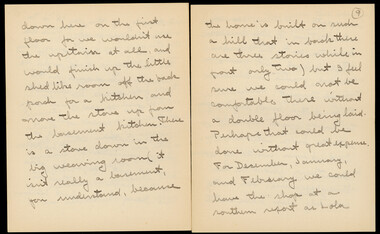 down here on the first
floor for we wouldn't use
the upstairs at all, and
would finish up the little
shed like room off the back
porch for a kitchen and
move the stove up from
the basement kitchen. There
is a stove down in the
big weaving room, it
isn't really a basement,
you understand, because
4
the home is built on such
a hill that in back there
are three stories while in
front only two) but I feel
sure we could not be
comfortable there without
a double floor being laid.
Perhaps that could be
done without great expense.
For December, January,
and February we could
have the shop at a
southern resort as Lola